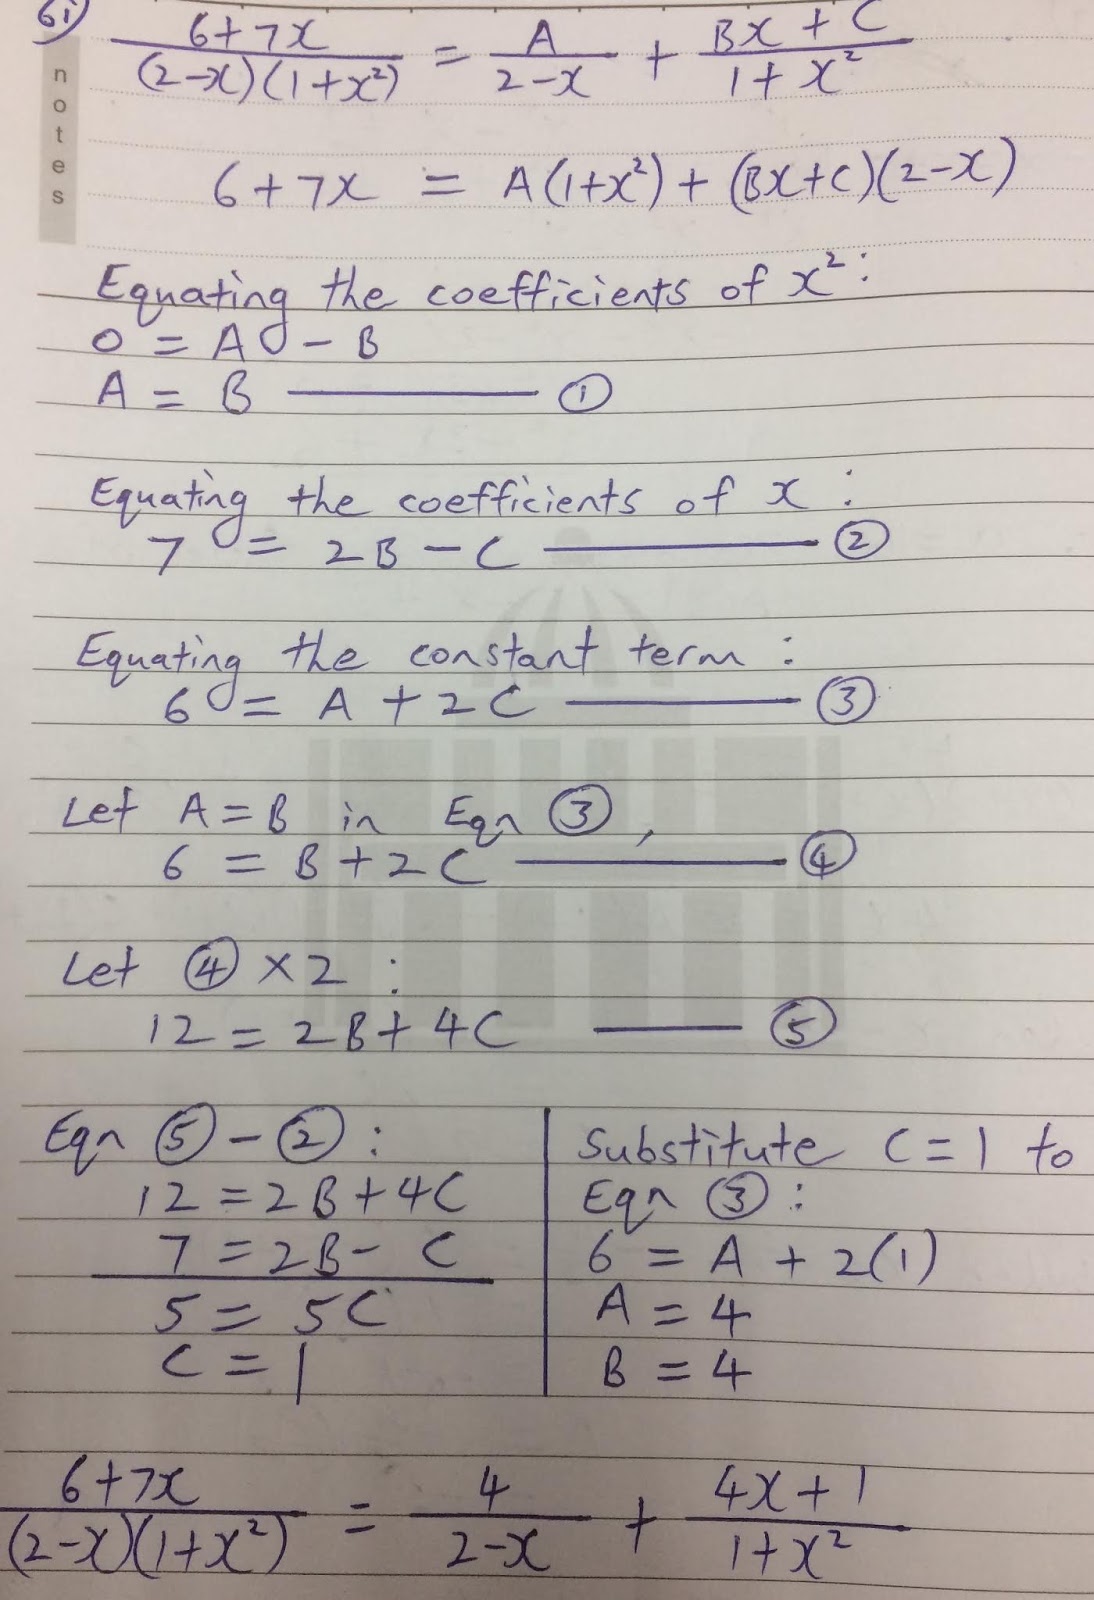 6i)
notes
(6+7x)/((2-x)(1+x²)) = A/(2-x) + (Bx+C)/(1+x²)
6+7x = A(1+x²)+(Bx+C)(2-x)
Equating the coefficients of x²:
0 = A - B
A = B ——— ①
Equating the coefficients of x:
7 = 2B - C ——— ②
Equating the constant term:
6 = A + 2C ——— ③
Let A=B in Eqn ③,
6 = B+2C ——— ④
Let ④ × 2 :
12 = 2B + 4C ——— ⑤
Eqn ⑤ - ② :
12 = 2B+4C
7 = 2B- C
5 = 5C
C = 1
Substitute C=1 to
Eqn ③ :
6 = A + 2(1)
A = 4
B = 4
(6+7x)/((2-x)(1+x²)) = 4/(2-x) + (4x+1)/(1+x²)